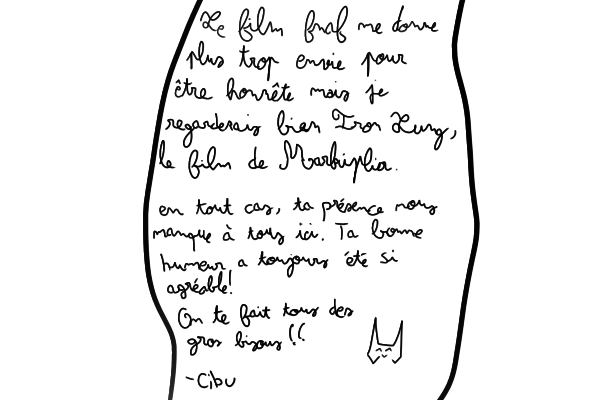 Le film fnaf me donne
plus trop envie pour
être honnête mais je
regarderais bien Iron Lung,
le film de Markiplia.
en tout cas, ta présence nous
manque à tous ici. Ta bonne
humeur a toujours été si
agréable!
On te fait tous des
gros bisous !!
-Cibu